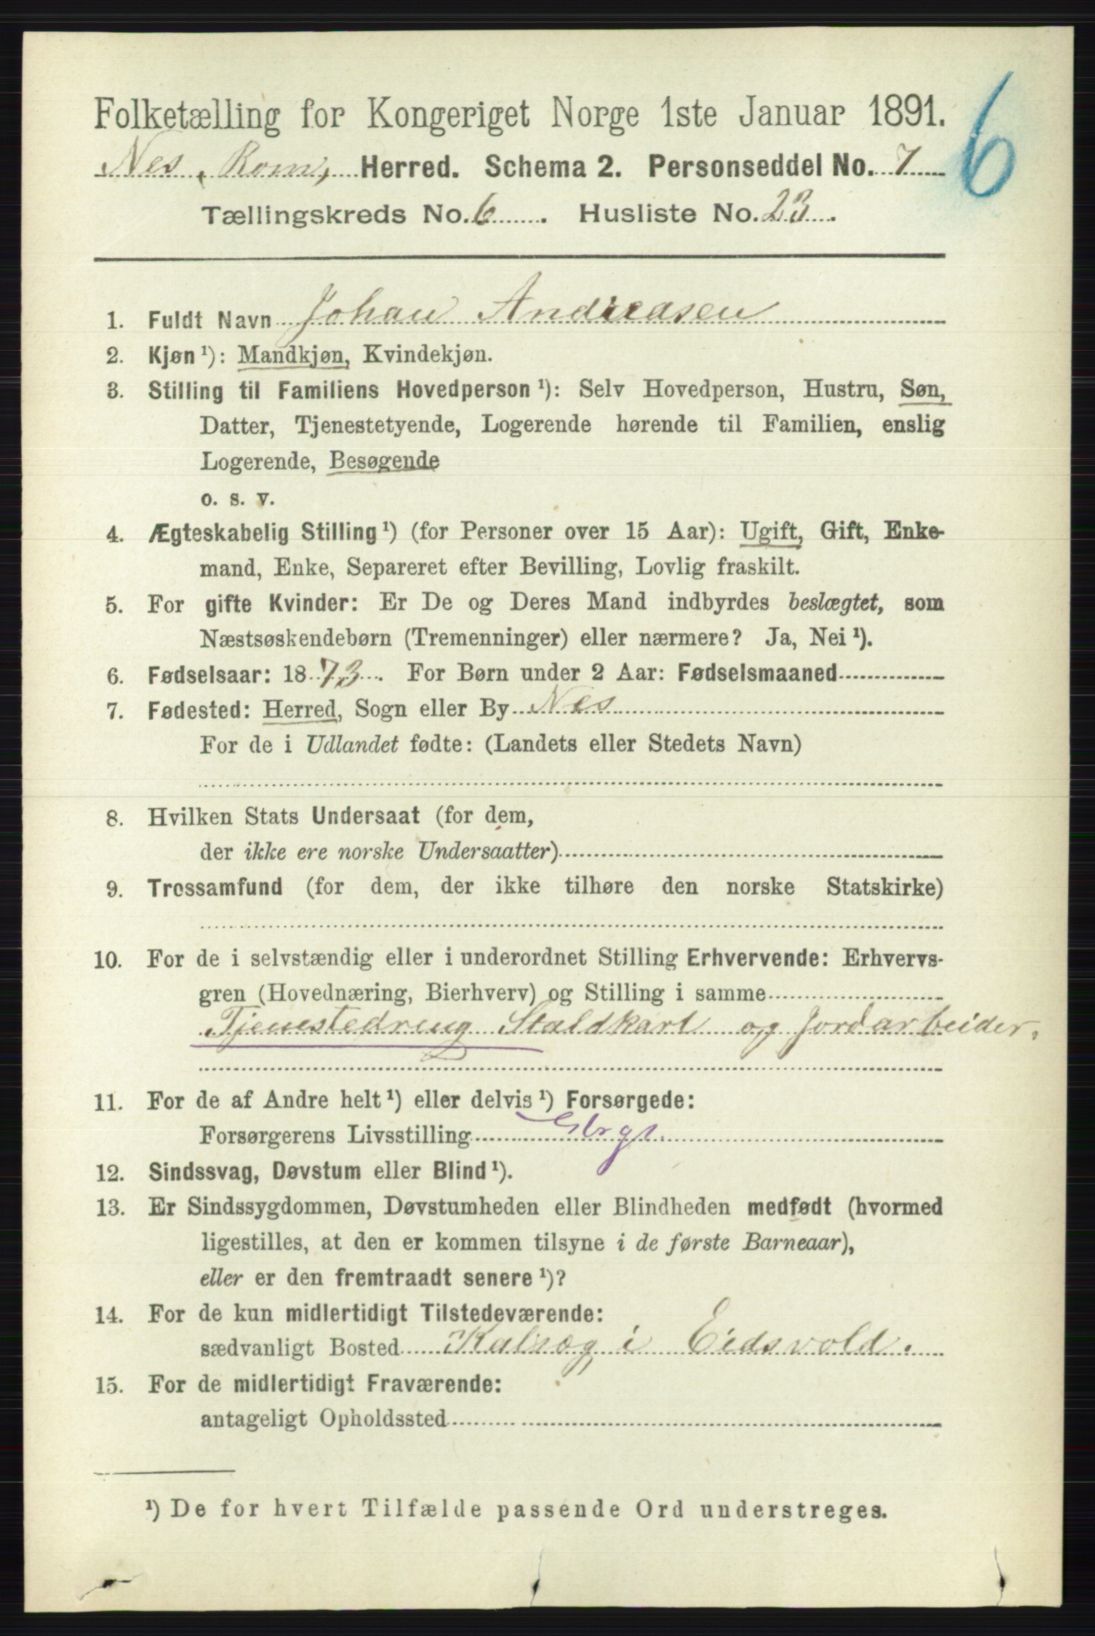 6
Folketælling for Kongeriget Norge 1ste Januar 1891.
Nes, Rom, Herred. Schema 2. Personseddel No. 7
Tællingskreds No. 6. Husliste No. 23.
1. Fuldt Navn Johan Andreasen
2. Kjøn ¹): Mandkjøn, Kvindekjøn.
3. Stilling til Familiens Hovedperson ¹): Selv Hovedperson, Hustru, Søn,
Datter, Tjenestetyende, Logerende hørende til Familien, enslig
Logerende, Besøgende
o. s. v.
4. Ægteskabelig Stilling ¹) (for Personer over 15 Aar): Ugift, Gift, Enke-
mand, Enke, Separeret efter Bevilling, Lovlig fraskilt.
5. For gifte Kvinder: Er De og Deres Mand indbyrdes beslægtet, som
Næstsøskendebørn (Tremenninger) eller nærmere? Ja, Nei ¹).
6. Fødselsaar: 1873. For Børn under 2 Aar: Fødselsmaaned
7. Fødested: Herred, Sogn eller By Nes
For de i Udlandet fødte: (Landets eller Stedets Navn)
8. Hvilken Stats Undersaat (for dem,
der ikke ere norske Undersaatter)
9. Trossamfund (for dem, der ikke tilhøre den norske Statskirke)
10. For de i selvstændig eller i underordnet Stilling Erhvervende: Erhvervs-
gren (Hovednæring, Bierhverv) og Stilling i samme
Tjenestedreng Staldkarl og Jordarbeider.
11. For de af Andre helt ¹) eller delvis ¹) Forsørgede:
Forsørgerens Livsstilling
12. Sindssvag, Døvstum eller Blind ¹).
13. Er Sindssygdommen, Døvstumheden eller Blindheden medfødt (hvormed
ligestilles, at den er kommen tilsyne i de første Barneaar),
eller er den fremtraadt senere ¹)?
14. For de kun midlertidigt Tilstedeværende:
sædvanligt Bosted i Eidsvold.
15. For de midlertidigt Fraværende:
antageligt Opholdssted
¹) De for hvert Tilfælde passende Ord understreges.